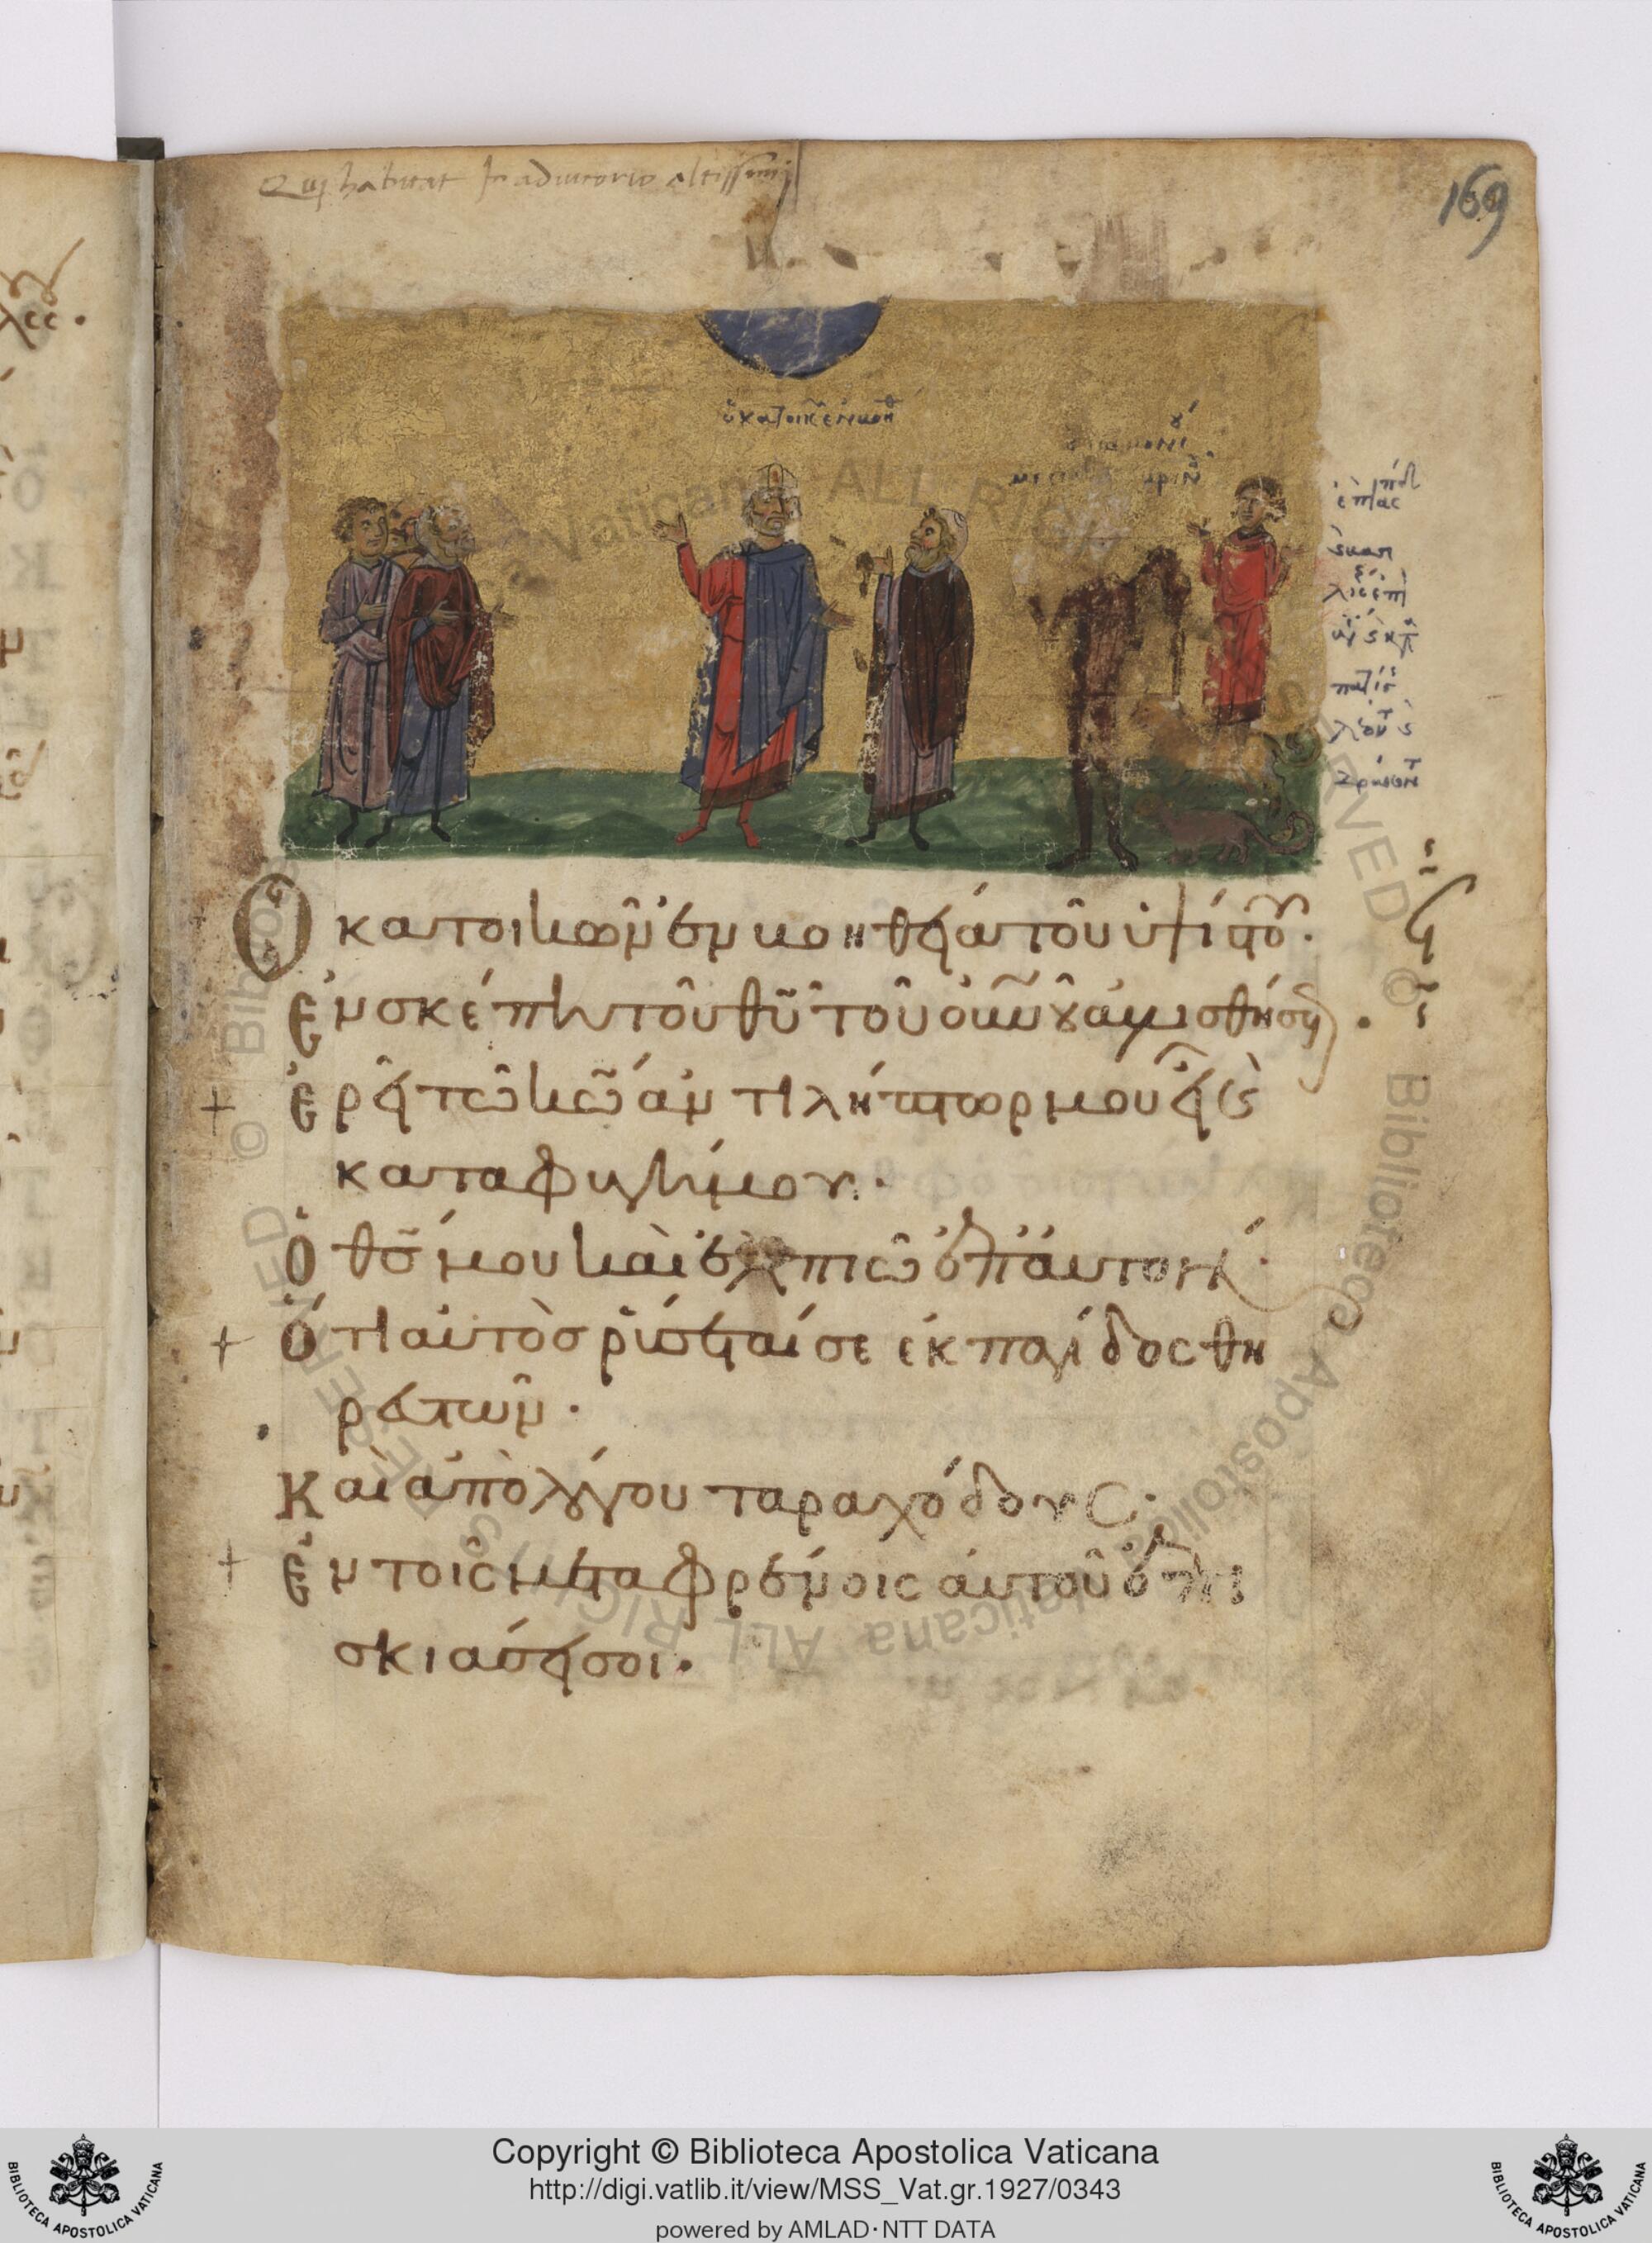 Qui habitat In adiutorio altissimi
169
ὁ κατοικ ἐν βοη
Ὁ κατοικῶν ἐν βοηθεία τοῦ ὑψίστου·
Ἐν σκέπη τοῦ θυ τοῦ ουνου αυλισθήσεται·
Ἐρεῖ τῶ κω ἀντιλήπτωρ μου εἶ καὶ
καταφυγή μου·
Ὁ θσ μου καὶ ἐλπιῶ ἐπ αυτον·
Ὅτι αὐτὸσ ῥύσεταί σε ἐκ παγίδος θη
ρευτῶν·
Καὶ ἀπὸ λόγου ταραχώδους·
Ἐν τοῖς μεταφρένοις αὐτοῦ ἐπι
σκιάσει σοι·
Copyright © Biblioteca Apostolica Vaticana
http://digi.vatlib.it/view/MSS_Vat.gr.1927/0343
powered by AMLAD·NTT DATA
BIBLIOTECA APOSTOLICA VATICANA
BIBLIOTECA APOSTOLICA VATICANA